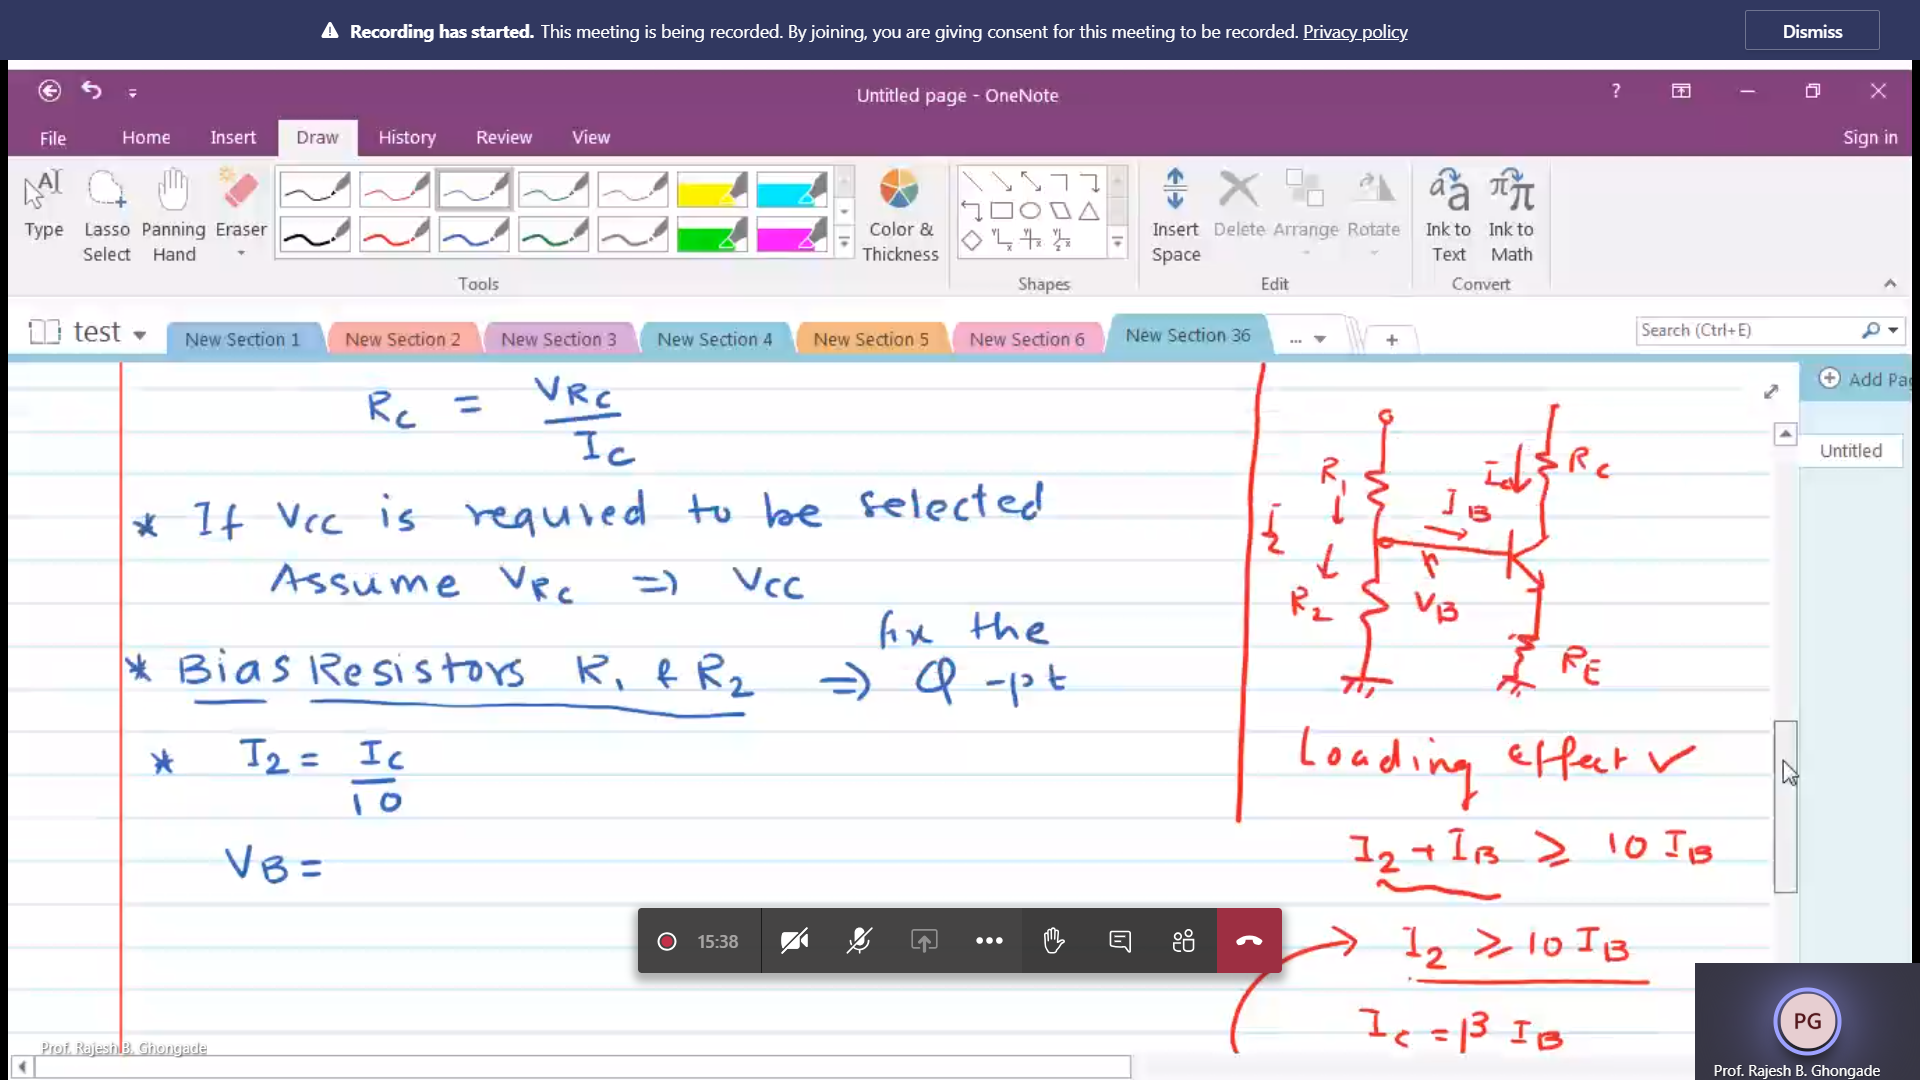 Recording has started. This meeting is being recorded. By joining, you are giving consent for this meeting to be recorded. Privacy policy
Dismiss
Untitled page - OneNote
?
File Home Insert Draw History Review View
Sign in
Type
Lasso Select
Panning Hand
Eraser
Color & Thickness
Insert Space
Delete
Arrange
Rotate
Ink to Text
Ink to Math
Tools
Shapes
Edit
Convert
test
New Section 1
New Section 2
New Section 3
New Section 4
New Section 5
New Section 6
New Section 36
...
Search (Ctrl+E)
Add Pag
Untitled
RC = VRC / IC
* If VCC is requured to be selected
Assume VRC ⇒ VCC
fix the
* Bias Resistors R1 & R2 ⇒ Q-pt
* I2 = IC / 10
VB =
R1
IC
RC
IB
I2
R2
VB
RE
Loading effect ✓
I2 + IB ≥ 10 IB
I2 ≥ 10 IB
IC = β IB
15:38
Prof. Rajesh B. Ghongade
PG
Prof. Rajesh B. Ghongade